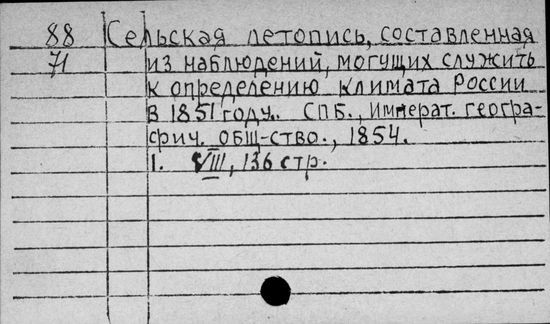 88 Сельская летопись, составленная
71 из наблюдений, могущих служить
к определению климата России
в 1851 году. СПБ., Императ. геогра-
фич. общ-ство., 1854.
1. VIII, 136 стр.